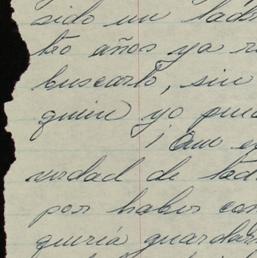 sido un lad
tro años ya
buscarlo, sin
quien yo pue
¡Que e
verdad de tod
por haber co
quería guardab